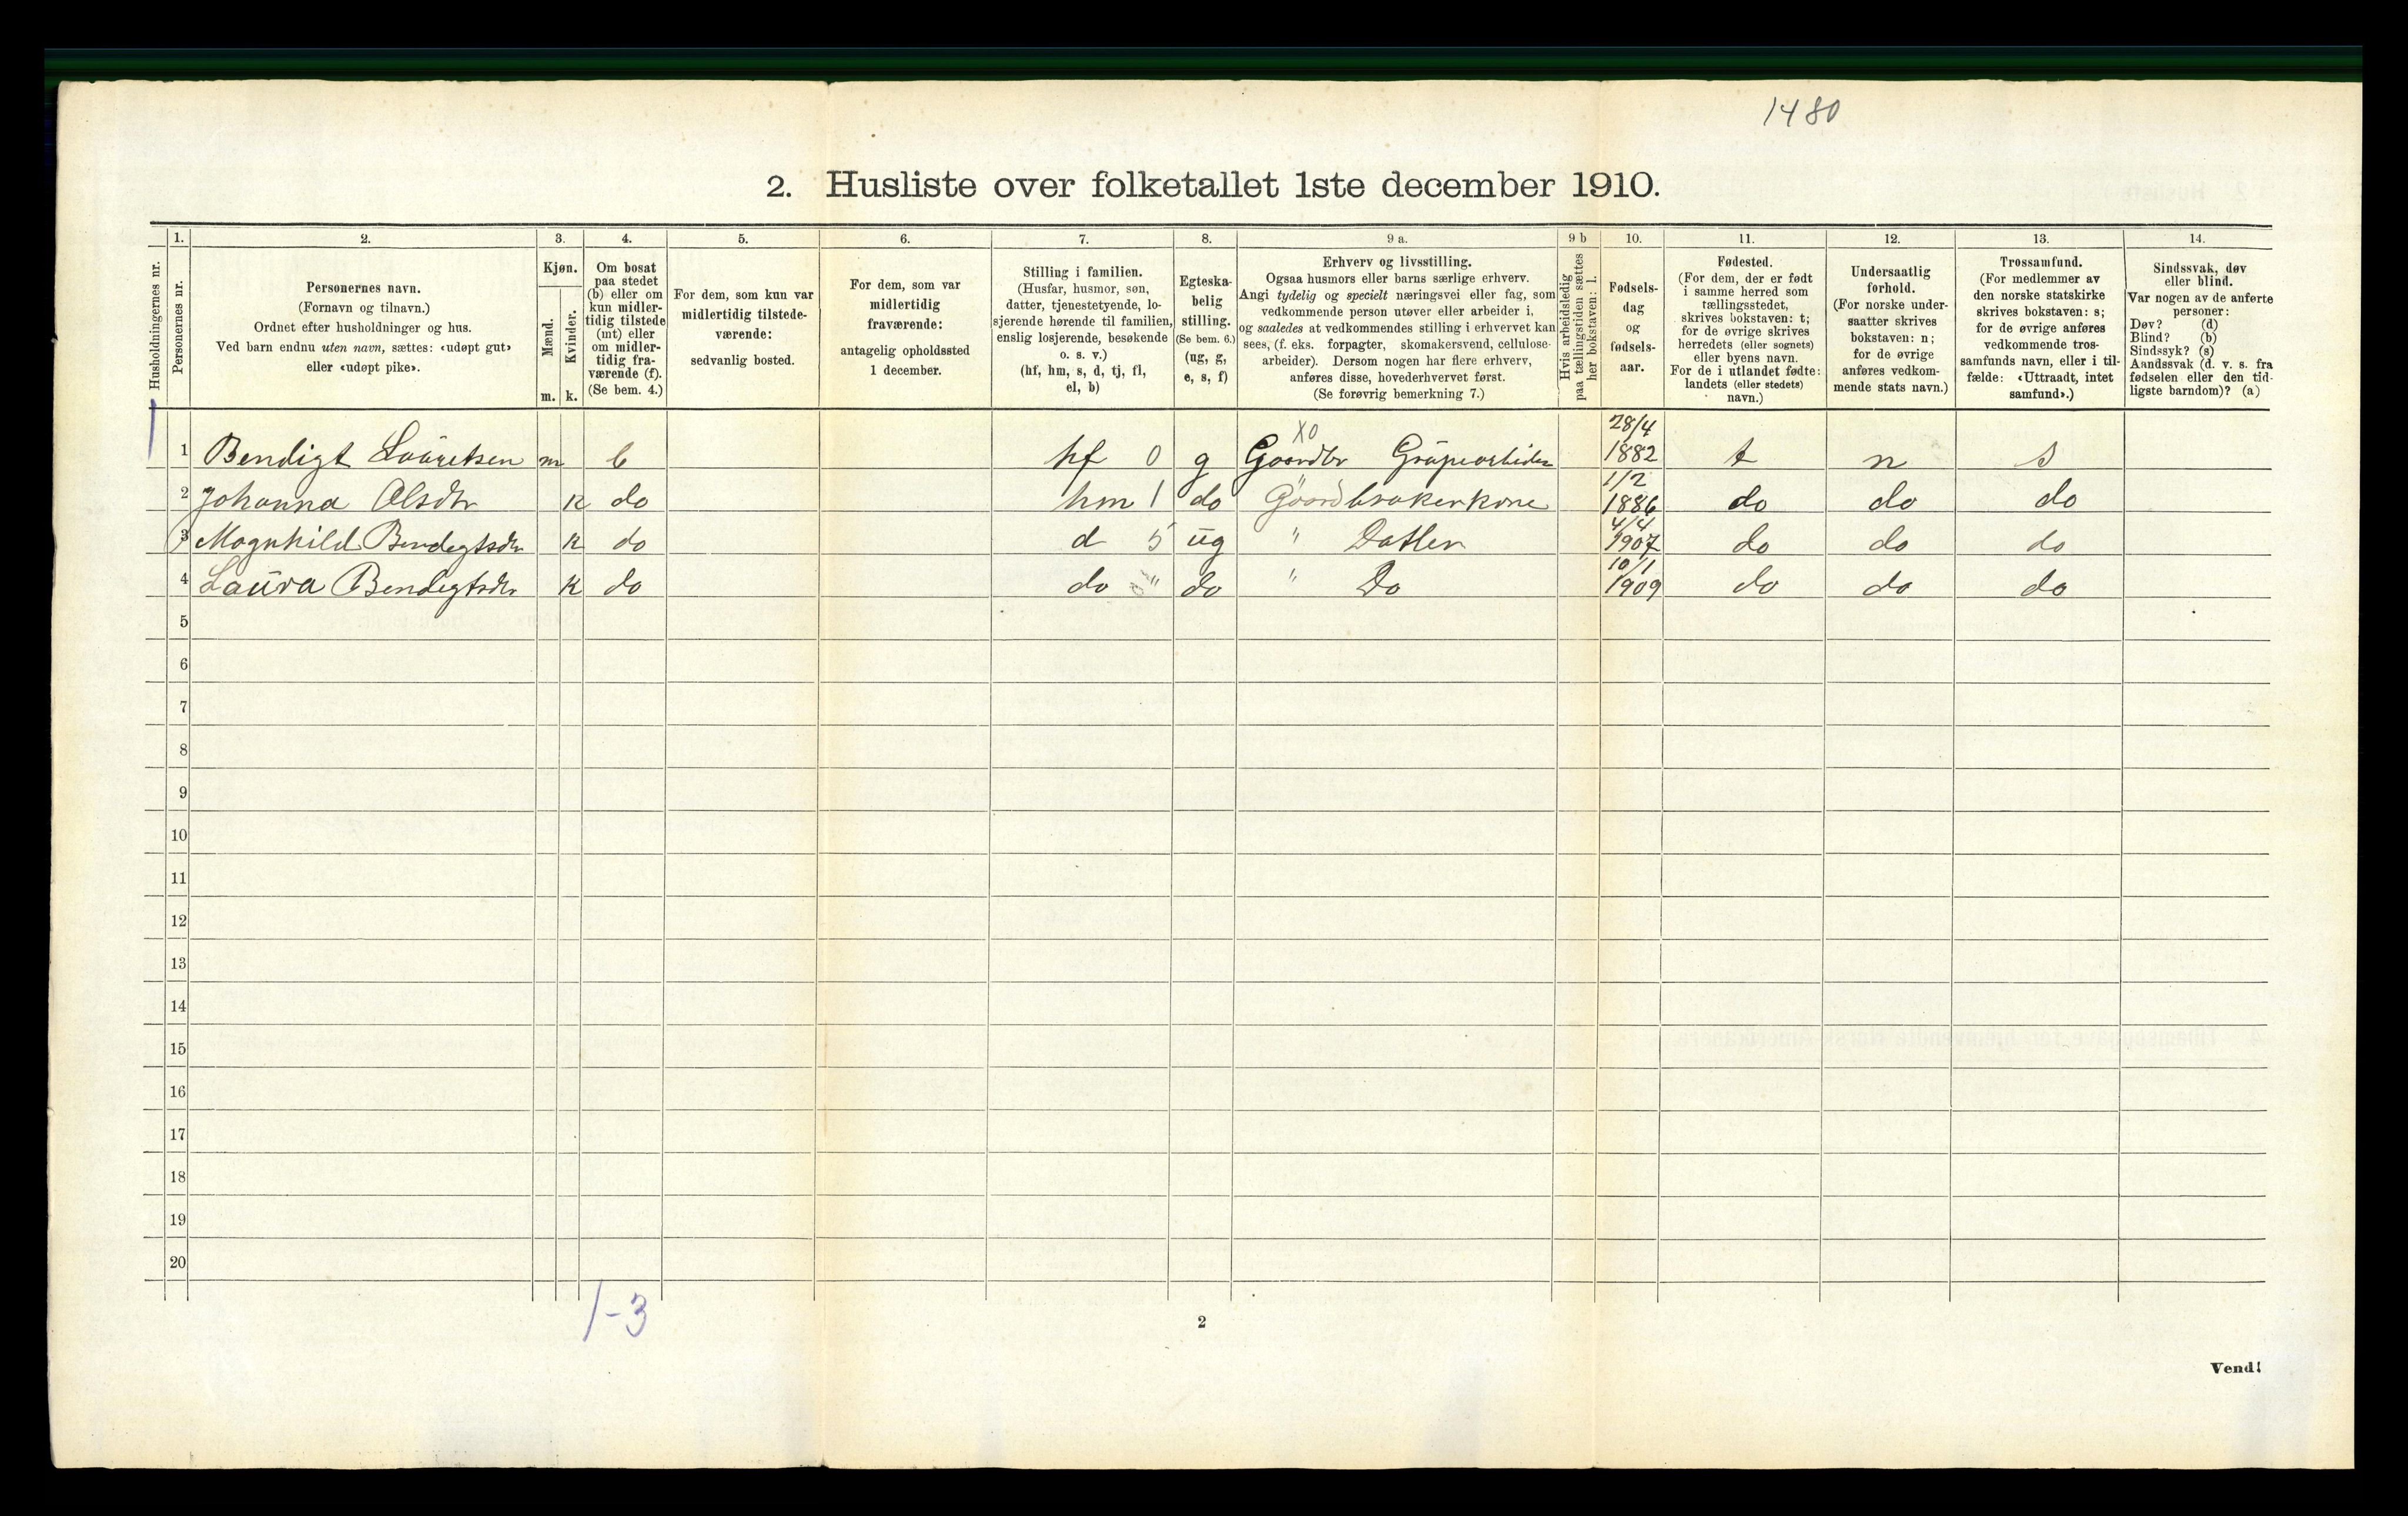 1480
2. Husliste over folketallet 1ste december 1910.
Husholdningernes nr.
1.
Personernes nr.
2.
Personernes navn.
(Fornavn og tilnavn.)
Ordnet efter husholdninger og hus.
Ved barn endnu uten navn, sættes: «udøpt gut»
eller «udøpt pike».
3.
Kjøn.
Mænd.
Kvinder.
m. k.
4.
Om bosat
paa stedet
(b) eller om
kun midler-
tidig tilstede
(mt) eller
om midler-
tidig fra-
værende (f).
(Se bem. 4.)
5.
For dem, som kun var
midlertidig tilstede-
værende:
sedvanlig bosted.
6.
For dem, som var
midlertidig
fraværende:
antagelig opholdssted
1 december.
7.
Stilling i familien.
(Husfar, husmor, søn,
datter, tjenestetyende, lo-
sjerende hørende til familien,
enslig losjerende, besøkende
o. s. v.)
(hf, hm, s, d, tj, fl,
el, b)
8.
Egteska-
belig
stilling.
(Se bem. 6.)
(ug, g,
e, s, f)
9 a.
Erhverv og livsstilling.
Ogsaa husmors eller barns særlige erhverv.
Angi tydelig og specielt næringsvei eller fag, som
vedkommende person utøver eller arbeider i,
og saaledes at vedkommendes stilling i erhvervet kan
sees, (f. eks. forpagter, skomakersvend, cellulose-
arbeider). Dersom nogen har flere erhverv,
anføres disse, hovederhvervet først.
(Se forøvrig bemerkning 7.)
9 b
Hvis arbeidsledig
paa tællingstiden sættes
her bokstaven: l.
10.
Fødsels-
dag
og
fødsels-
aar.
11.
Fødested.
(For dem, der er født
i samme herred som
tællingsstedet,
skrives bokstaven: t;
for de øvrige skrives
herredets (eller sognets)
eller byens navn.
For de i utlandet fødte:
landets (eller stedets)
navn.)
12.
Undersaatlig
forhold.
(For norske under-
saatter skrives
bokstaven: n;
for de øvrige
anføres vedkom-
mende stats navn.)
13.
Trossamfund.
(For medlemmer av
den norske statskirke
skrives bokstaven: s;
for de øvrige anføres
vedkommende tros-
samfunds navn, eller i til-
fælde: «Uttraadt, intet
samfund».)
14.
Sindssvak, døv
eller blind.
Var nogen av de anførte
personer:
Døv? (d)
Blind? (b)
Sindssyk? (s)
Aandssvak (d. v. s. fra
fødselen eller den tid-
ligste barndom)? (a)
X0 28/4
1 Bendigt Lauritsen m b hf 0 g Gaardbr Grupearbider 1882 t n s
1/2
2 Johanna Olsdtr k do hm 1 do Gaardbrukerkone 1886 do do do
4/4
3 Magnhild Bendegtsdr k do d 5 ug " Datter 1907 do do do
10/1
4 Laura Bendegtsdr k do do " do " Do 1909 do do do
5
6
7
8
9
10
11
12
13
14
15
16
17
18
19
20
1-3
2
Vend!